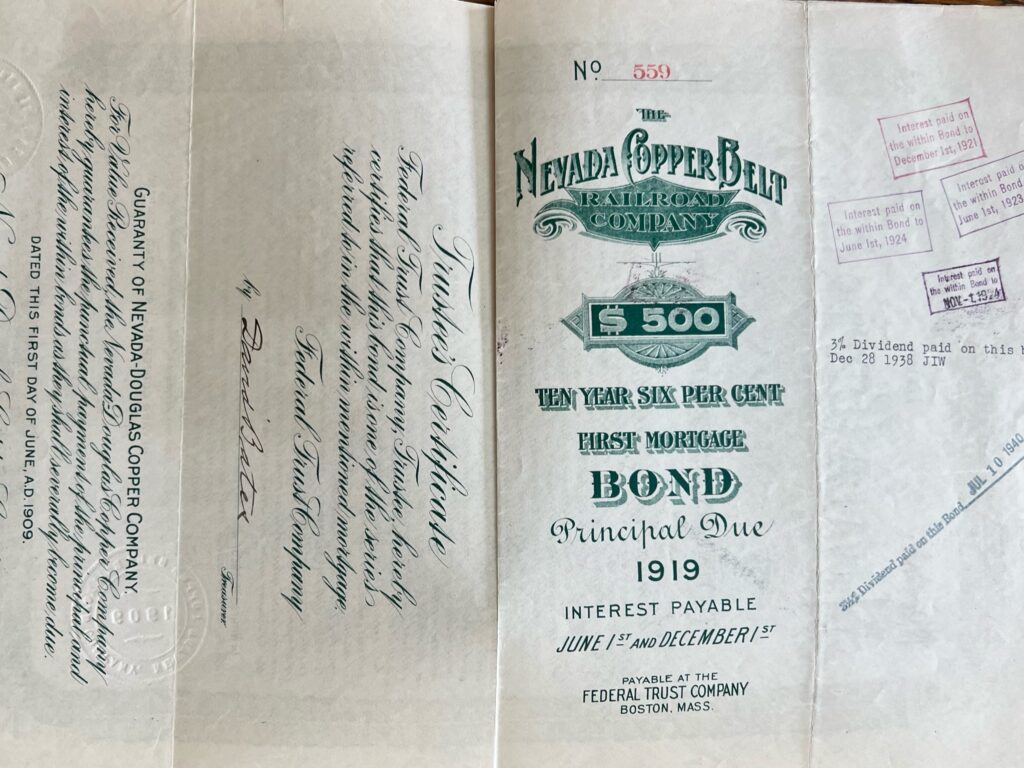 Trustee's Certificate
Federal Trust Company, Trustee, hereby
certifies that this bond is one of the series
referred to in the within mentioned mortgage.
Federal Trust Company
by David Bates
Treasurer
GUARANTY OF NEVADA-DOUGLAS COPPER COMPANY.
For Value Received, the Nevada Douglas Copper Company
hereby guarantees the punctual payment of the principal and
interest of the within bond as they shall severally become due.
DATED THIS FIRST DAY OF JUNE, A.D. 1909.
No 559
THE
NEVADA COPPER BELT
RAILROAD
COMPANY
$ 500
TEN YEAR SIX PER CENT
FIRST MORTGAGE
BOND
Principal Due
1919
INTEREST PAYABLE
JUNE 1ST AND DECEMBER 1ST
PAYABLE AT THE
FEDERAL TRUST COMPANY
BOSTON, MASS.
Interest paid on
the within Bond to
December 1st, 1921
Interest paid o
the within Bond
June 1st, 1923
Interest paid on
the within Bond to
June 1st, 1924
Interest paid on
the within Bond to
NOV -1 1924
3% Dividend paid on this b
Dec 28 1938 JIW
3½% Dividend paid on this Bond JUL 10 1940